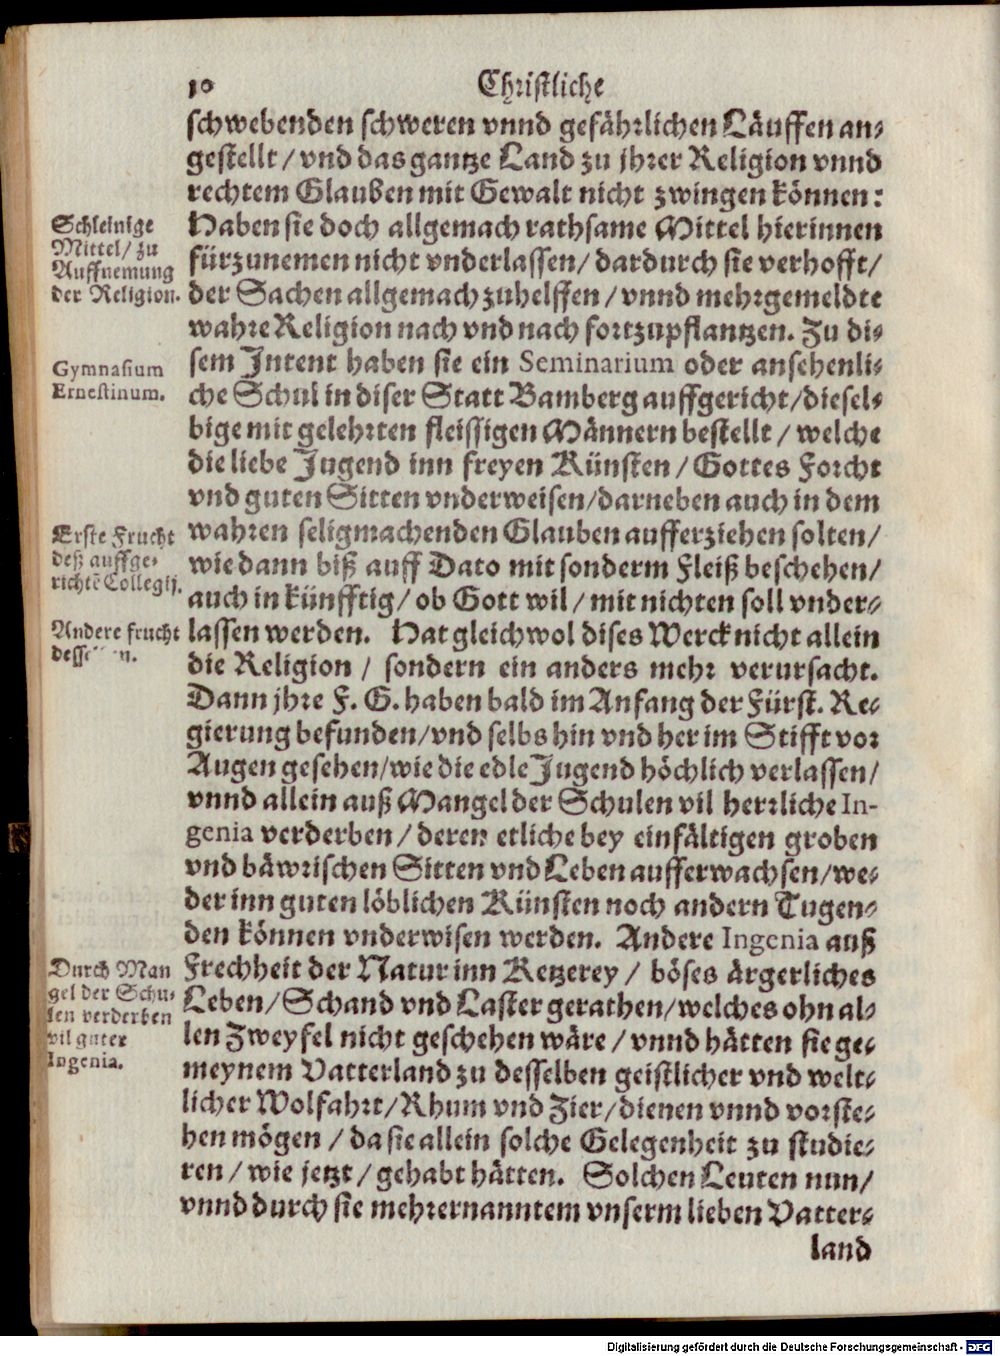 10 Christliche
schwebenden schweren vnnd gefährlichen Läuffen an-
gestellt / vnd das gantze Land zu jhrer Religion vnnd
rechtem Glauben mit Gewalt nicht zwingen können:
Haben sie doch allgemach rathsame Mittel hierinnen
fürzunemen nicht vnderlassen / dardurch sie verhofft /
der Sachen allgemach zuhelffen / vnnd mehrgemeldte
wahre Religion nach vnd nach fortzupflantzen. Zu di-
sem Intent haben sie ein Seminarium oder ansehenli-
che Schul in diser Statt Bamberg auffgericht / diesel-
bige mit gelehrten fleissigen Männern bestellt / welche
die liebe Jugend inn freyen Künsten / Gottes Forcht
vnd guten Sitten vnderweisen / darneben auch in dem
wahren seligmachenden Glauben aufferziehen solten /
wie dann biß auff Dato mit sonderm Fleiß beschehen /
auch in künfftig / ob Gott wil / mit nichten soll vnder-
lassen werden. Hat gleichwol dises Werck nicht allein
die Religion / sondern ein anders mehr verursacht.
Dann jhre F. G. haben bald im Anfang der Fürst. Re-
gierung befunden / vnd selbs hin vnd her im Stifft vor
Augen gesehen / wie die edle Jugend höchlich verlassen /
vnnd allein auß Mangel der Schulen vil herrliche In-
genia verderben / deren etliche bey einfältigen groben
vnd bäwrischen Sitten vnd Leben aufferwachsen / we-
der inn guten löblichen Künsten noch andern Tugen-
den können vnderwisen werden. Andere Ingenia auß
Frechheit der Natur inn Ketzerey / böses ärgerliches
Leben / Schand vnd Laster gerathen / welches ohn al-
len Zweyfel nicht geschehen wäre / vnnd hätten sie ge-
meynem Vatterland zu desselben geistlicher vnd welt-
licher Wolfahrt / Rhum vnd Zier / dienen vnnd vorste-
hen mögen / da sie allein solche Gelegenheit zu studie-
ren / wie jetzt / gehabt hätten. Solchen Leuten nun /
vnnd durch sie mehrernanntem vnserm lieben Vatter-
land
Schleinige
Mittel / zu
Auffnemung
der Religion.
Gymnasium
Ernestinum.
Erste Frucht
deß auffge-
richtẽ Collegij.
Andere frucht
Durch Man
gel der Schu-
len verderben
vil guter
Ingenia.
Digitalisierung gefördert durch die Deutsche Forschungsgemeinschaft - DFG